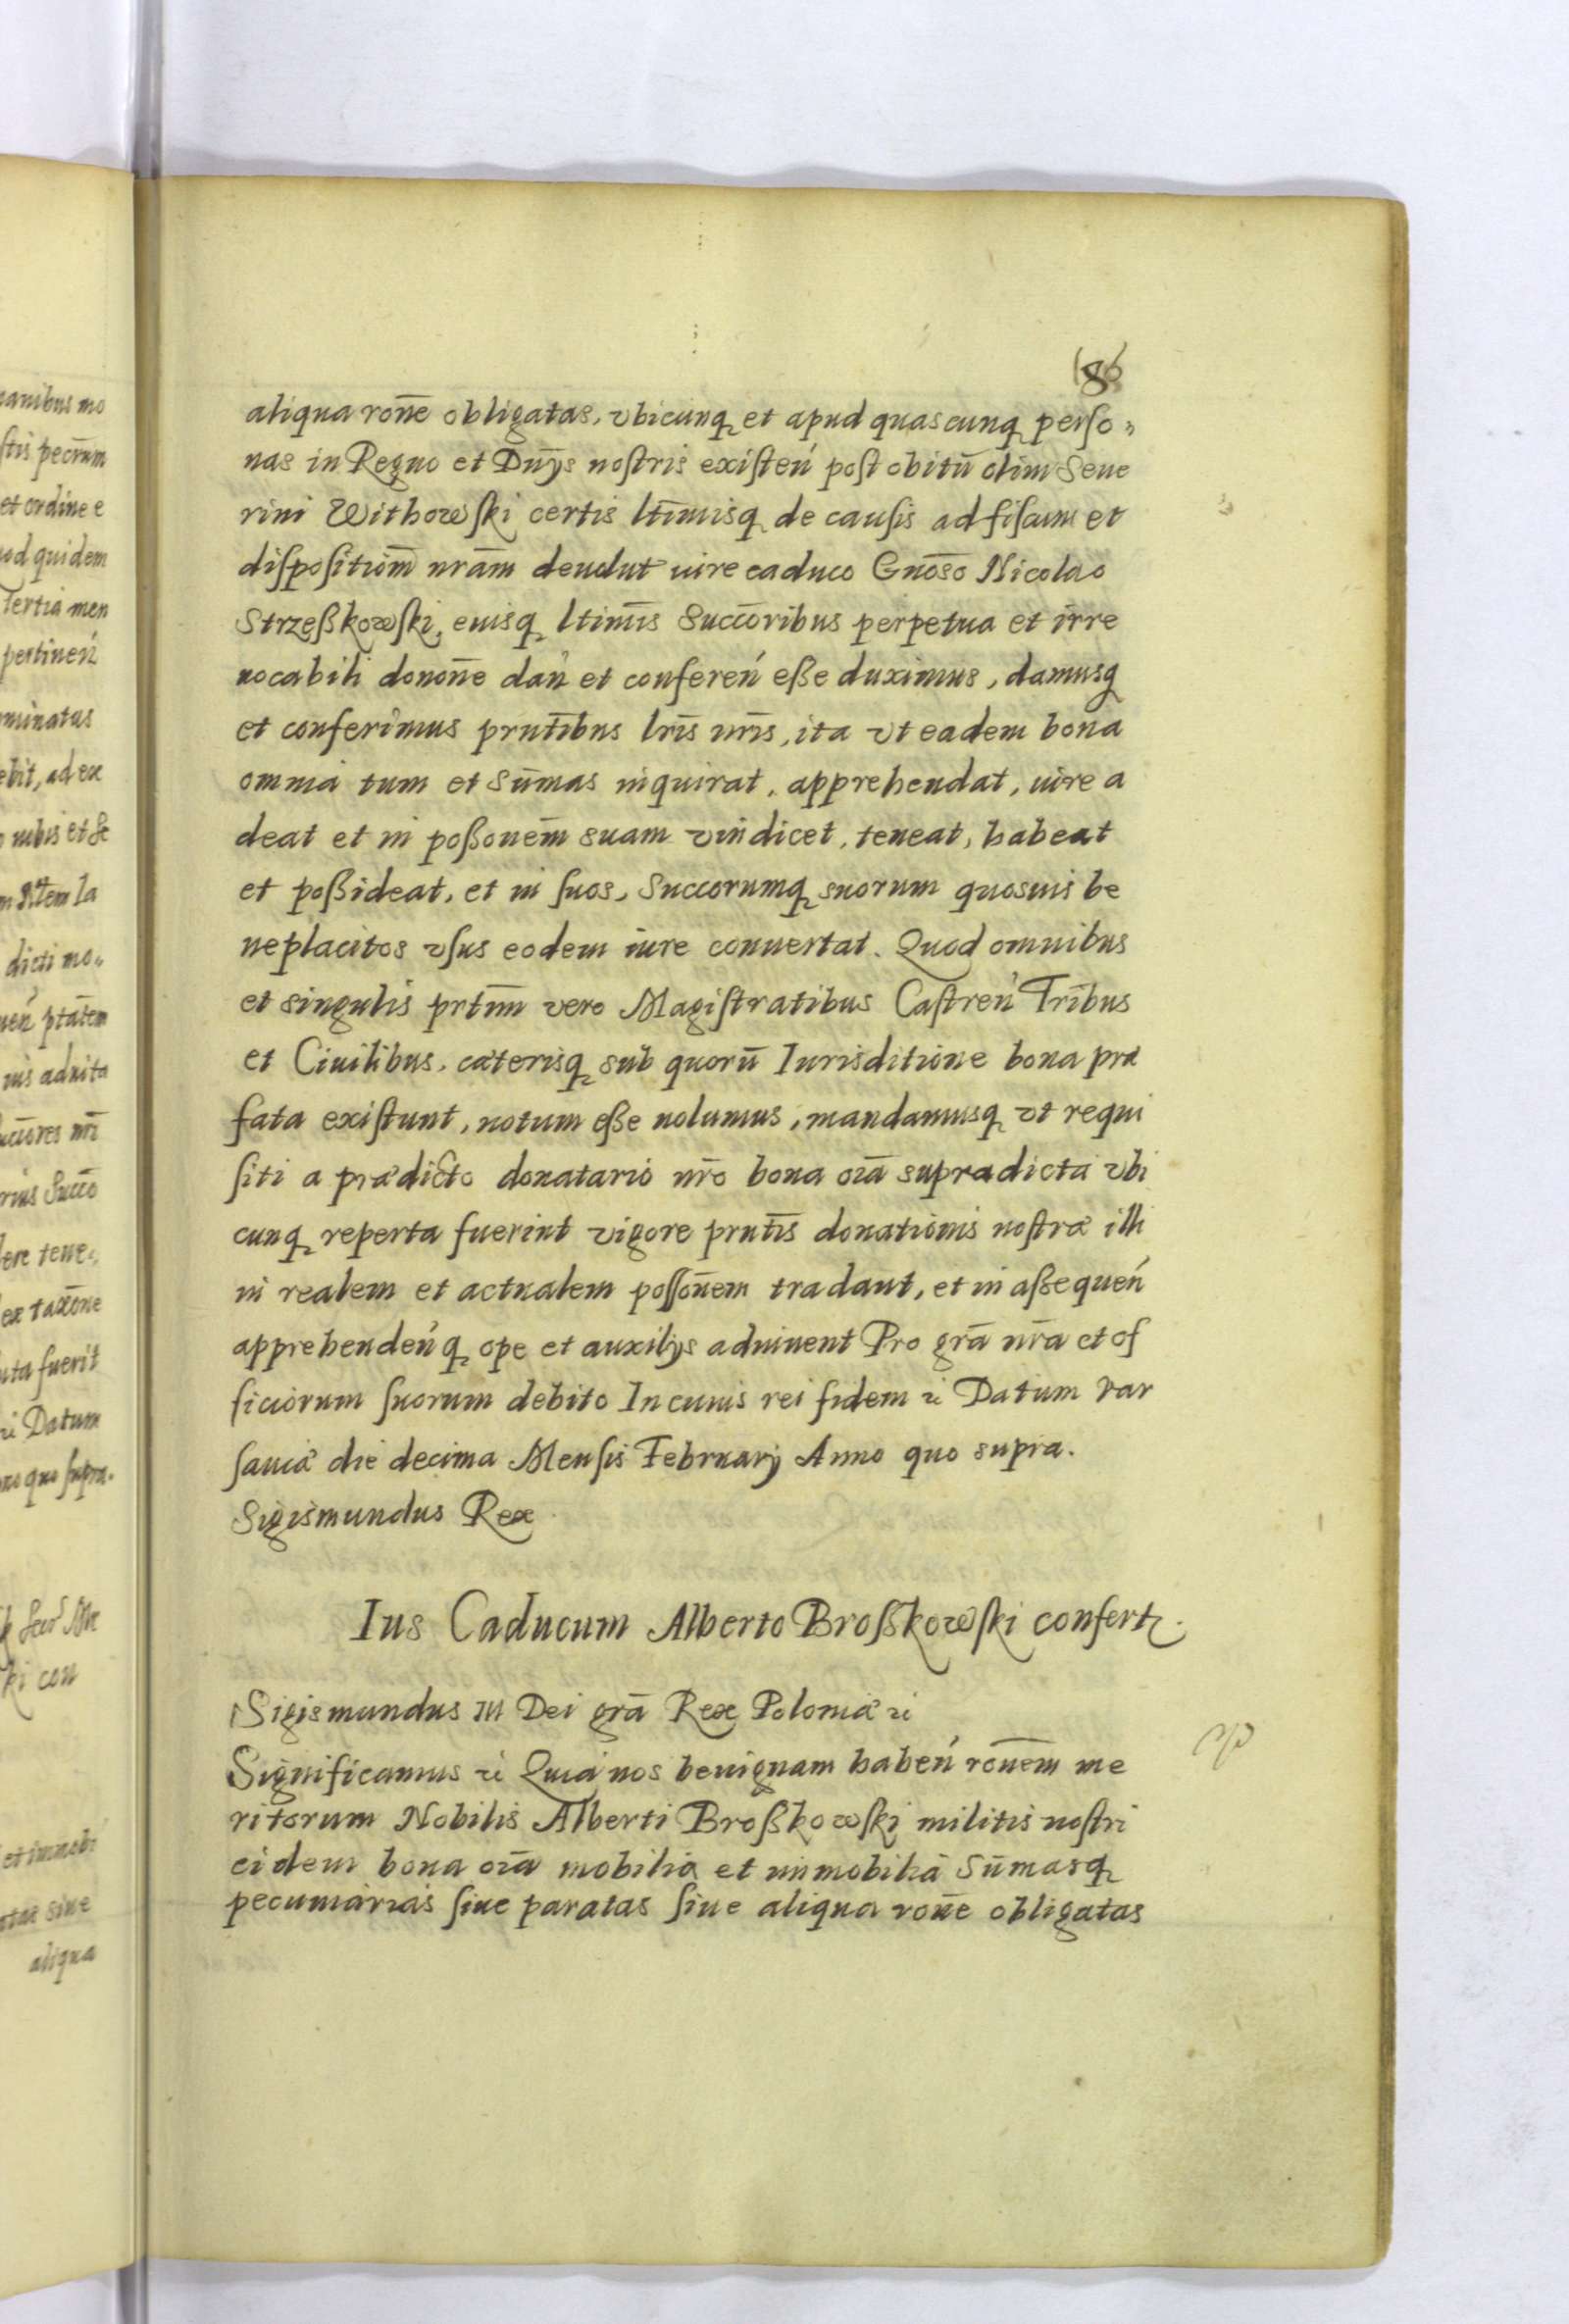 186
aliqua ronē obligatas, vbicunq, et apud quascunq, perſo„
nas in Regno et Dnijs noſtris exiſteń poſt obitū olim Seue
rini Withowſki certis ltimisq, de cauſis ad fiſcum et
diſpoſitiom̄ nram̄ deuolut iure caduco Gnoso Nicolao
Strzeßkowſki, euisq, ltimis Succoribus perpetua et irre
uocabili dononē dań et confereń eße duximus, damusq,
et conferimus prntibus lris nris, ita vt eadem bona
omnia tum et Sūmas inquirat, apprehendat, iure a
deat et in poßonem̄ suam vindicet, teneat, habeat
et poßideat, et in ſuos, Succorumq, suorum quosuis be
neplacitos vſus eodem iure conuertat. Quod omnibus
et singulis prtim vero Magiſtratibus Caſtreń Tribus
et Ciuilibus, cæterisq, sub quorū Iurisditione bona præ
fata exiſtunt, notum eße uolumus, mandamusq, vt requi
ſiti a prædicto donatario nro bona oia supradicta vbi
cunq, reperta fuerint vigore prntis donationis noſtræ illi
in realem et actualem poſſonem tradant, et in aßequeń
apprehendeńq, ope et auxilijs adiuuent Pro gra nra et of
ficiorum ſuorum debito In cuius rei fidem ꝛc Datum Var
ſauiæ die decima Menſis Februarij Anno quo supra.
Sigismundus Rex
Ius Caducum Alberto Broßkowſki confertr.
Sigismundus III Dei gra Rex Poloniæ ꝛc
Significamus ꝛc Quia nos benignam habeń ronem me
ritorum Nobilis Alberti Broßkowſki militis noſtri
eidem bona oia mobilia et immobilia Sūmasq,
pecuniarias ſiue paratas ſiue aliqua ronē obligatas